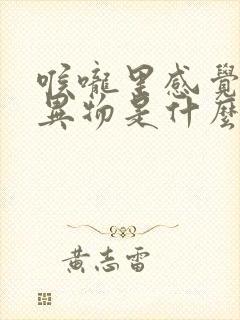 喉嚨里感覺
異物是什麼
黃志雷